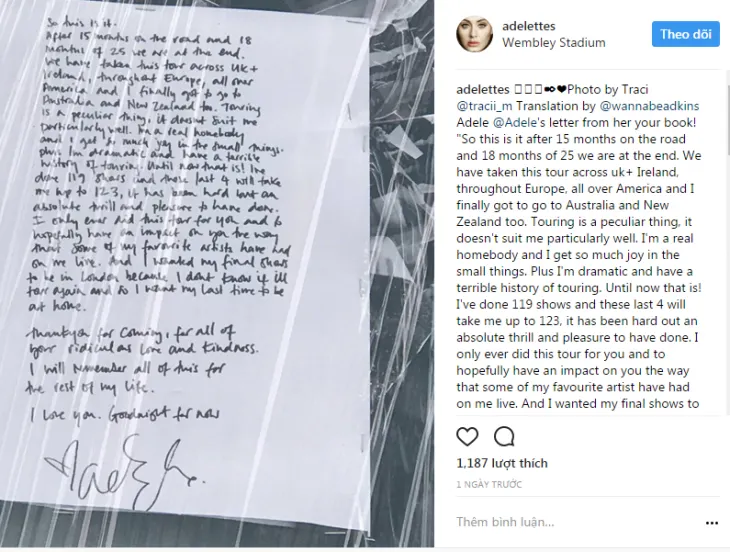 So this is it.
After 15 months on the road and 18
months of 25 we are at the end.
We have taken this tour across UK+
Ireland, throughout Europe, all over
America and I finally got to go to
Australia and New Zealand too. Touring
is a peculiar thing, it doesnt suit me
particularly well. Im a real homebody
and I get so much joy in the small things.
Plus I'm dramatic and have a terrible
history of touring. Until now that is! I've
done 119 shows and these last 4 will take
me up to 123, it has been hard but an
absolute thrill and pleasure to have done.
I only ever did this tour for you and to
hopefully have an impact on you the way
that some of my favourite artists have had
on me live. And I wanted my final shows
to be in London because I dont know if ill
tour again and so I want my last time to be
at home.
Thankyou for coming, for all of
your ridiculous love and kindness.
I will remember all of this for
the rest of my life.
I love you. Goodnight for now
adelettes
Wembley Stadium
Theo dõi
adelettes Photo by Traci
@tracii_m Translation by @wannabeadkins
Adele @Adele's letter from her your book!
"So this is it after 15 months on the road
and 18 months of 25 we are at the end. We
have taken this tour across uk+ Ireland,
throughout Europe, all over America and I
finally got to go to Australia and New
Zealand too. Touring is a peculiar thing, it
doesn't suit me particularly well. I'm a real
homebody and I get so much joy in the
small things. Plus I'm dramatic and have a
terrible history of touring. Until now that is!
I've done 119 shows and these last 4 will
take me up to 123, it has been hard out an
absolute thrill and pleasure to have done. I
only ever did this tour for you and to
hopefully have an impact on you the way
that some of my favourite artist have had
on me live. And I wanted my final shows to
1,187 lượt thích
1 NGÀY TRƯỚC
Thêm bình luận...